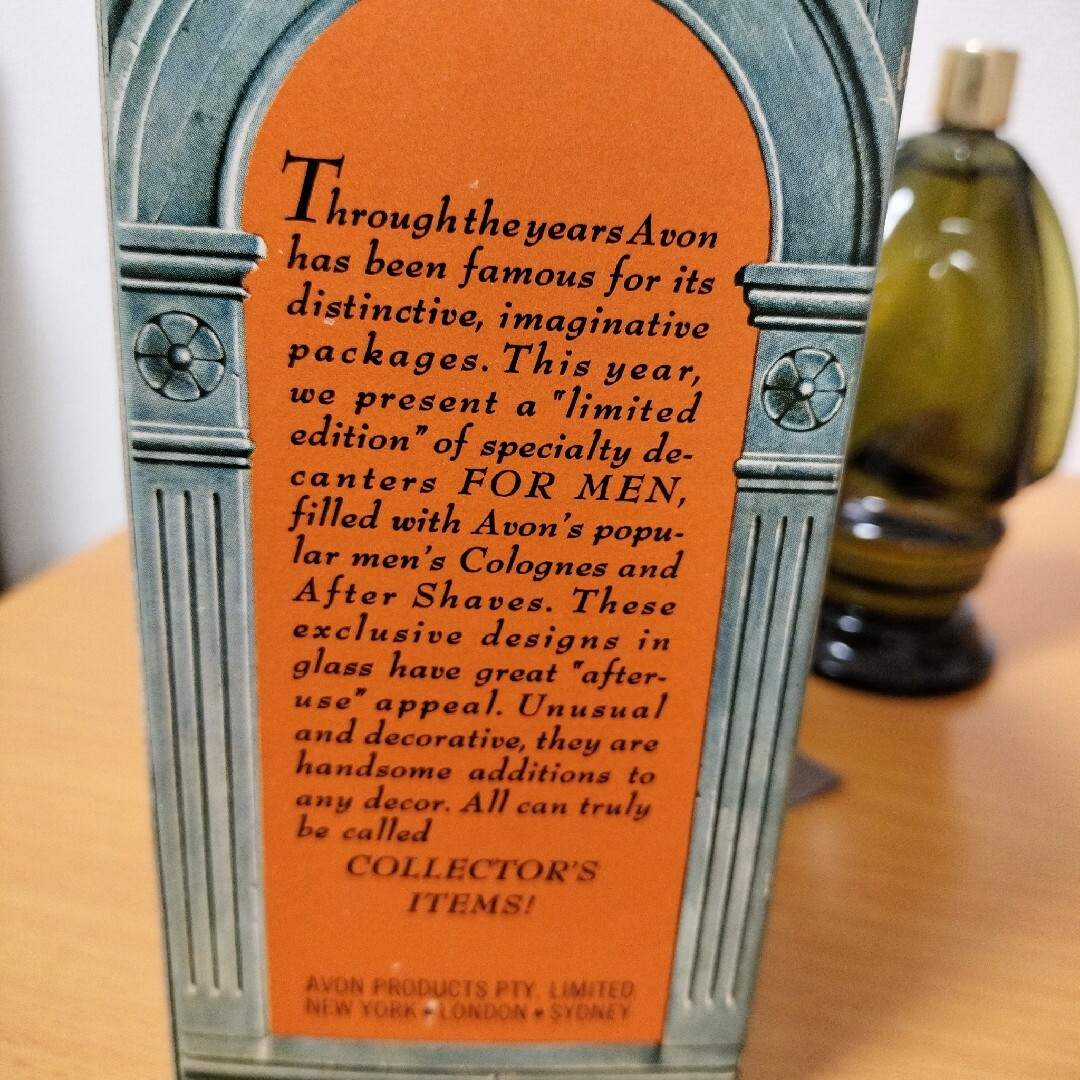 Through the years Avon
has been famous for its
distinctive, imaginative
packages. This year,
we present a "limited
edition" of specialty de-
canters FOR MEN,
filled with Avon's popu-
lar men's Colognes and
After Shaves. These
exclusive designs in
glass have great "after-
use" appeal. Unusual
and decorative, they are
handsome additions to
any decor. All can truly
be called
COLLECTOR'S
ITEMS!
AVON PRODUCTS PTY. LIMITED
NEW YORK • LONDON • SYDNEY